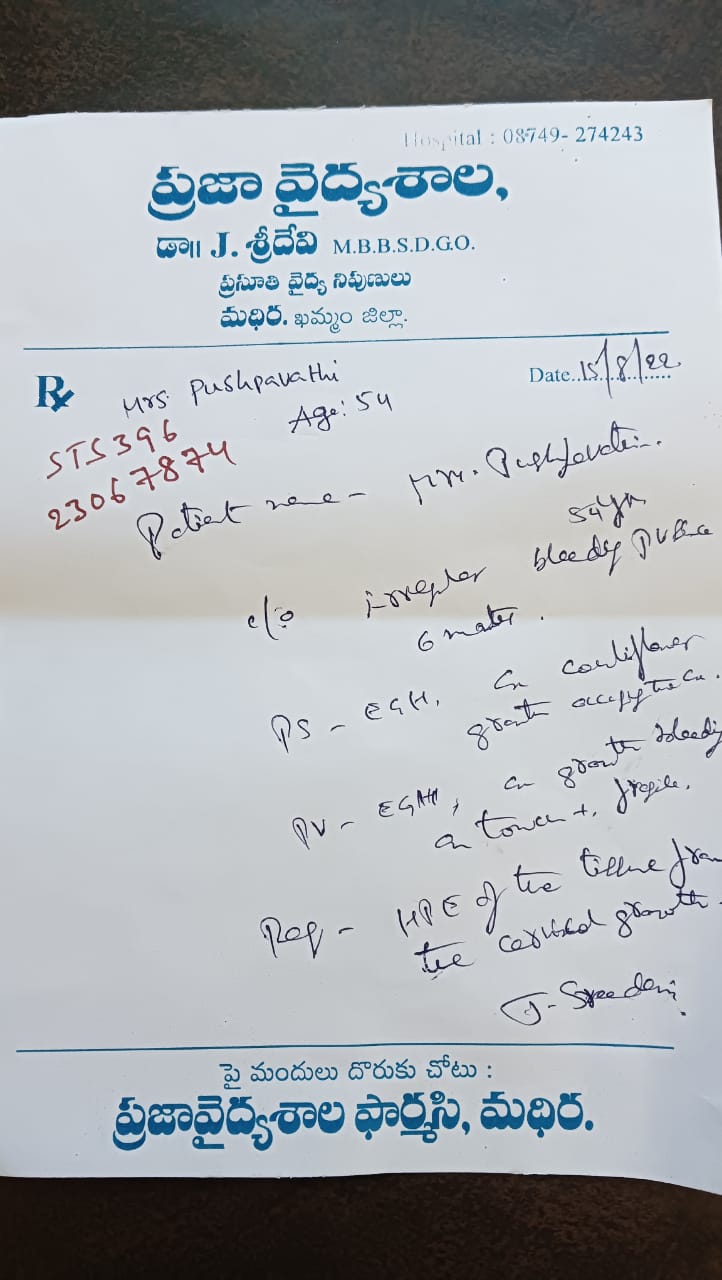 Hospital : 08749- 274243
ప్రజా వైద్యశాల,
డా॥ J. శ్రీదేవి M.B.B.S.D.G.O.
ప్రసూతి వైద్య నిపుణులు
మధిర. ఖమ్మం జిల్లా.
Rx
Date..15/8/22
Mrs. Pushpavathi
Age: 54
STS396
23067874
Patient name - Mrs. Pushpavathi.
54 yrs
c/o irregular bleeding PV
6 months.
PS - cauliflower
growth
PV - growth bleeding
on touch +, fragile.
Req - HPE of the tissue from
the cervical growth.
J. Sreedevi
పై మందులు దొరుకు చోటు :
ప్రజావైద్యశాల ఫార్మసి, మధిర.